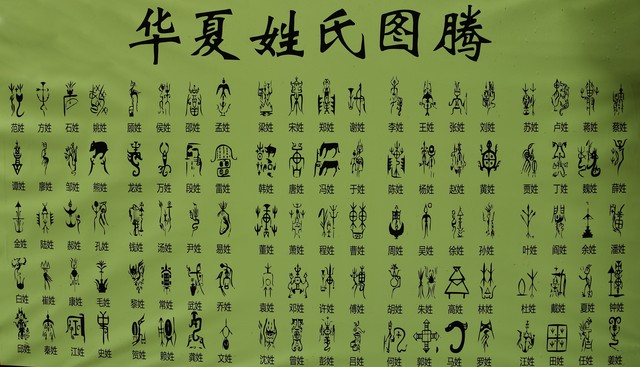 华夏姓氏图腾
范姓 方姓 石姓 姚姓 顾姓 侯姓 邵姓 孟姓 梁姓 宋姓 郑姓 谢姓 李姓 王姓 张姓 刘姓 苏姓 卢姓 蒋姓 蔡姓
谭姓 廖姓 邹姓 熊姓 龙姓 万姓 段姓 雷姓 韩姓 唐姓 冯姓 于姓 陈姓 杨姓 赵姓 黄姓 贾姓 丁姓 魏姓 薛姓
金姓 陆姓 郝姓 孔姓 钱姓 汤姓 尹姓 易姓 董姓 萧姓 程姓 曹姓 周姓 吴姓 徐姓 孙姓 叶姓 阎姓 余姓 潘姓
白姓 崔姓 康姓 毛姓 黎姓 常姓 武姓 乔姓 袁姓 邓姓 许姓 傅姓 胡姓 朱姓 高姓 林姓 杜姓 戴姓 夏姓 钟姓
邱姓 秦姓 江姓 史姓 贺姓 赖姓 龚姓 文姓 沈姓 曾姓 彭姓 吕姓 何姓 郭姓 马姓 罗姓 汪姓 田姓 任姓 姜姓